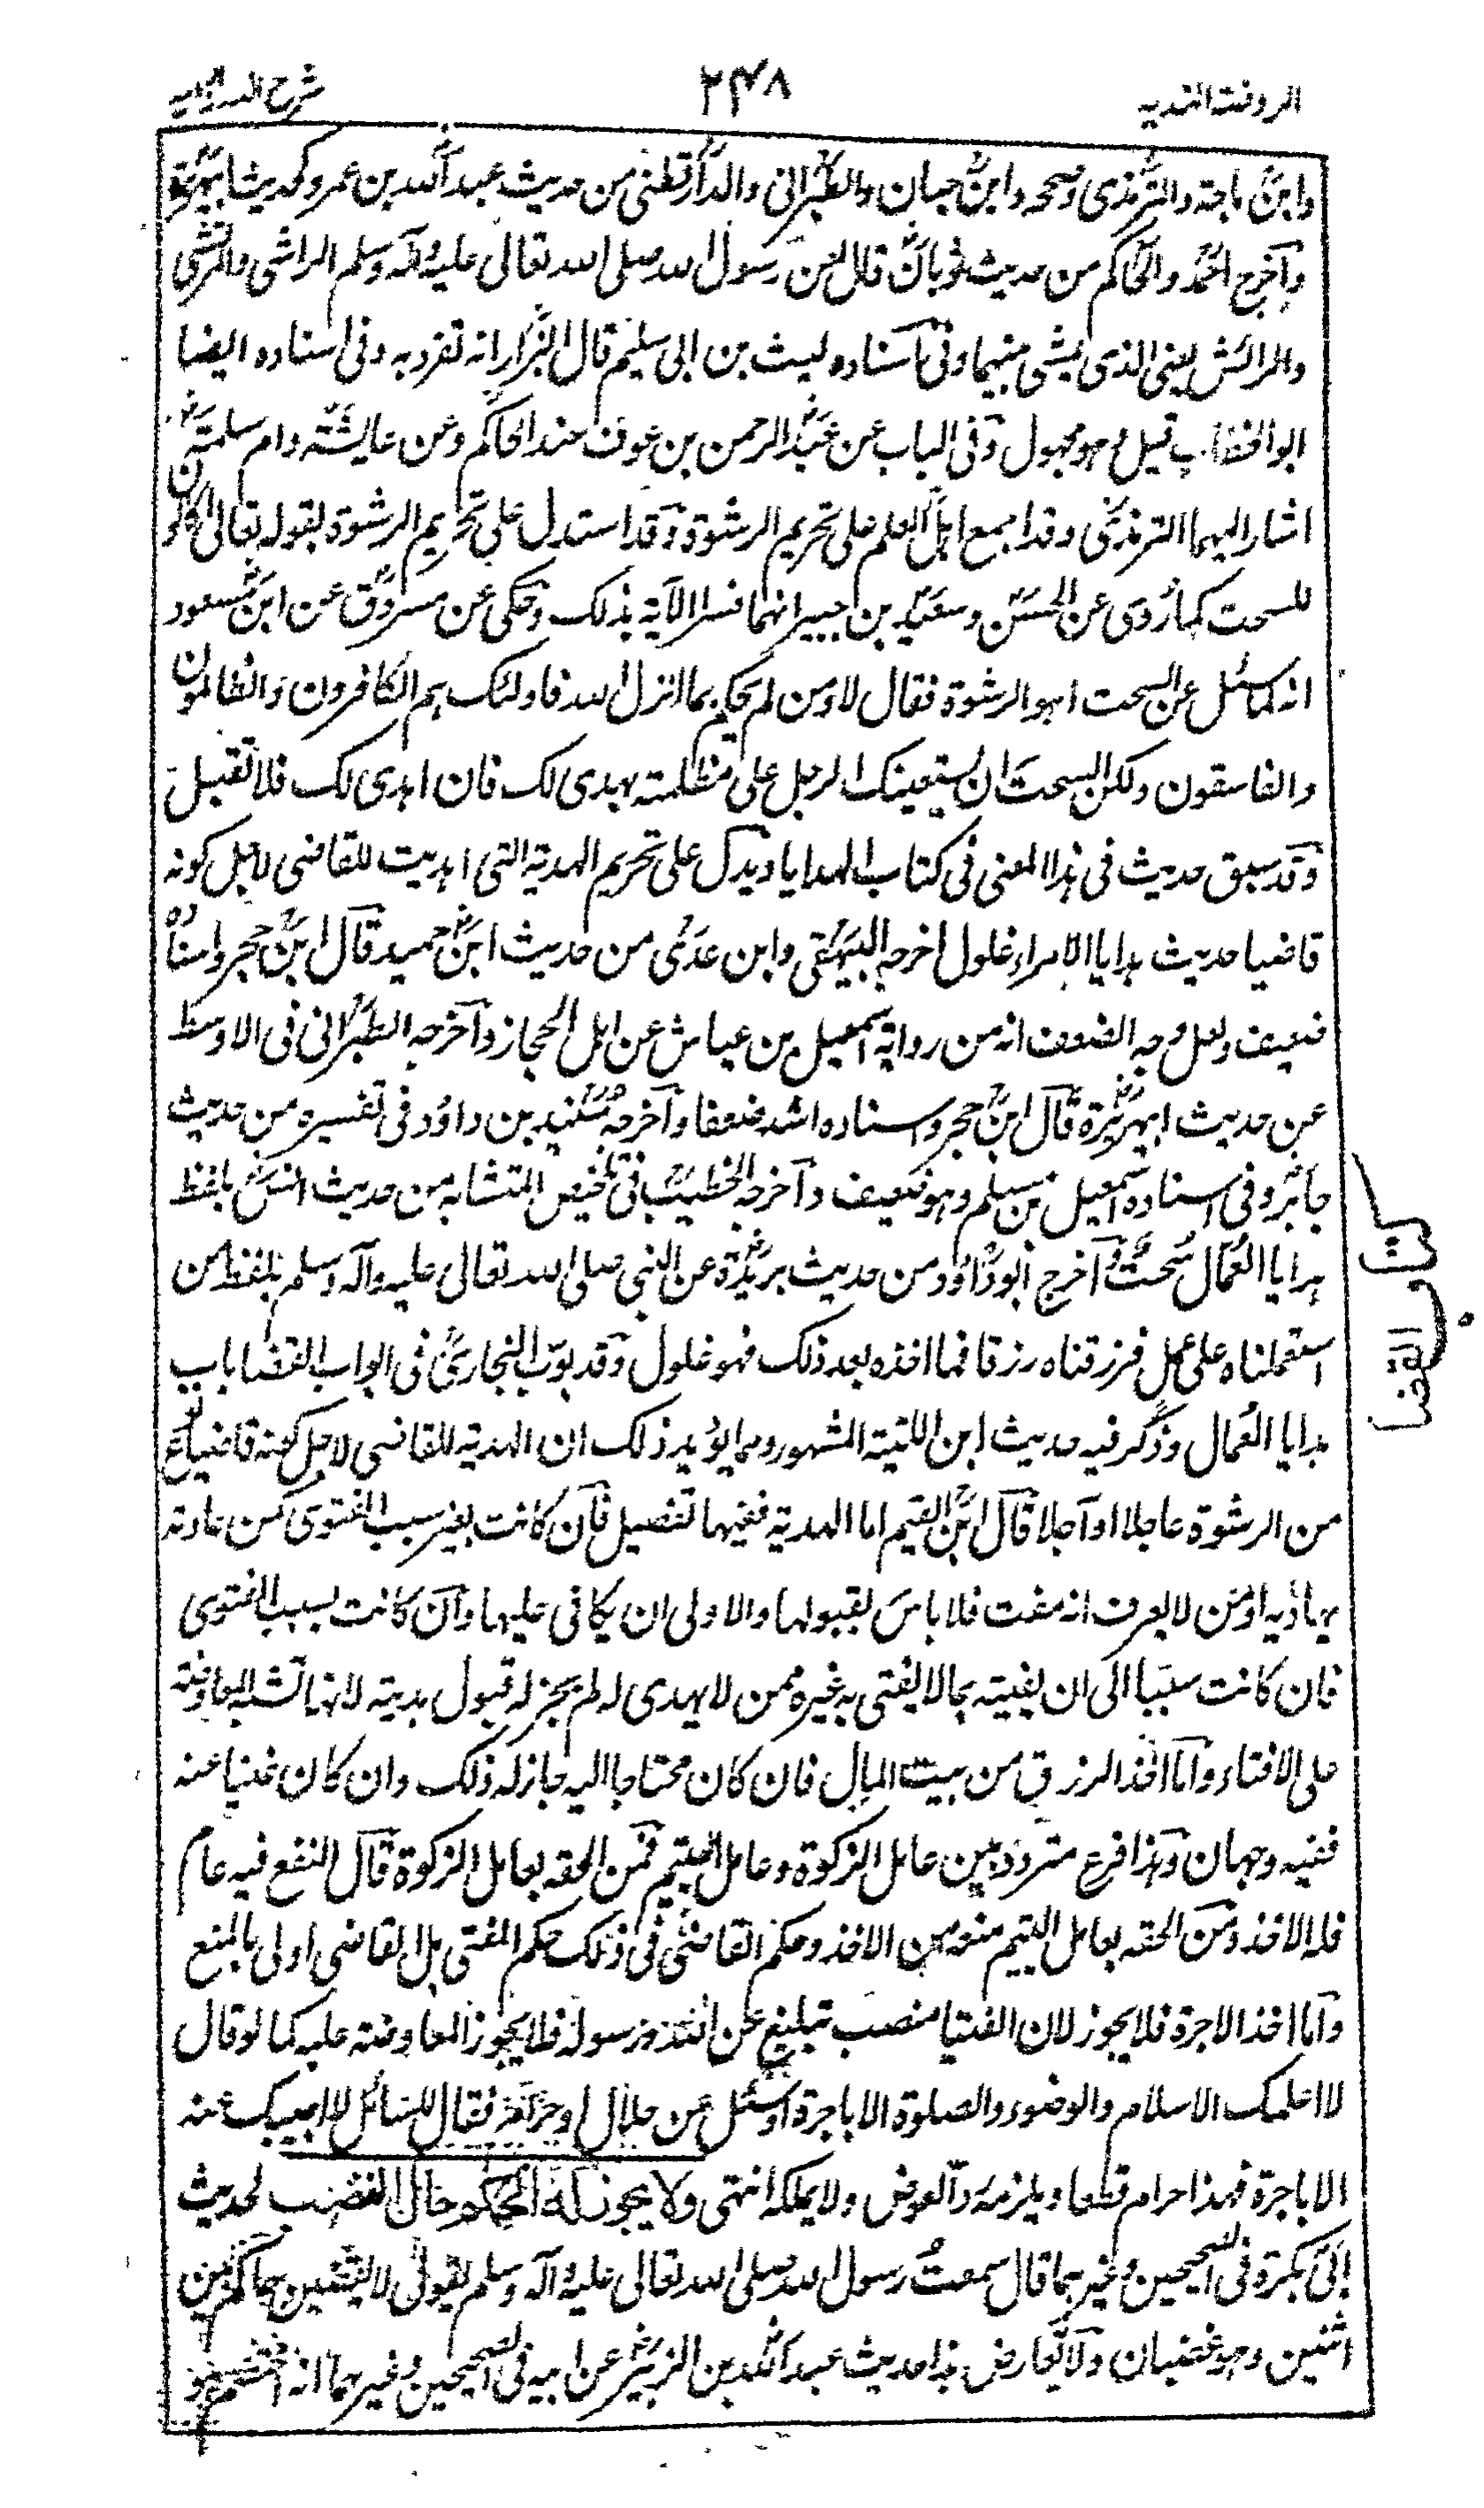 الروضة الندية
٢٤٨
شرح الدرر البهية
وابن ماجة والترمذي وصححه وابن حبان والطبراني والدارقطني من حديث عبد الله بن عمرو كحديث ابي هريرة
وأخرج احمد والحاكم من حديث ثوبان قال لعن رسول الله صلى الله تعالى عليه وآله وسلم الراشي والمرتشي
والرائش يعني الذي يمشي بينهما وفي اسناده ليث بن ابي سليم قال البزار انه تفرد به وفي اسناده ايضا
ابو الخطاب قيل هو مجهول وفي الباب عن عبد الرحمن بن عوف عند الحاكم وعن عايشة وام سلمة
اشار اليهما الترمذي وقد اجمع اهل العلم على تحريم الرشوة وقد استدل على تحريم الرشوة بقوله تعالى اكالون
للسحت كما روى عن الحسن وسعيد بن جبير انهما فسرا الآية بذلك وحكى عن مسروق عن ابن مسعود
انه لما سئل عن السحت اهو الرشوة فقال لا ومن لم يحكم بما انزل الله فاولئك هم الكافرون والظالمون
والفاسقون ولكن السحت ان يستعينك الرجل على مظلمته يهدى لك فان اهدى لك فلا تقبل
وقد سبق حديث في هذا المعنى في كتاب الهدايا ويدل على تحريم الهدية التي اهديت للقاضي لاجل كونه
قاضيا حديث هدايا الامراء غلول اخرجه البيهقي وابن عدي من حديث ابن حميد قال ابن حجر واسناده
ضعيف ولعل وجه الضعف انه من رواية اسمعيل بن عياش عن اهل الحجاز وأخرجه الطبراني في الاوسط
عن حديث ابي هريرة قال ابن حجر واسناده اشد ضعفا وأخرجه سنيد بن داؤد في تفسيره من حديث
جابر وفي اسناده اسمعيل بن مسلم وهو ضعيف وأخرجه الخطيب في تلخيص المتشابه من حديث انس بلفظ
هدايا العمال سحت وأخرج ابو داؤد من حديث بريدة عن النبي صلى الله تعالى عليه وآله وسلم بلفظ من
استعملناه على عمل فرزقناه رزقا فما اخذه بعد ذلك فهو غلول وقد بوب البخاري في ابواب القضا باب
هدايا العمال وذكر فيه حديث ابن اللتبية المشهور ومما يؤيد ذلك ان الهدية للقاضي لاجل كونه قاضيا نوع
من الرشوة عاجلا او آجلا قال ابن القيم اما الهدية ففيها تفصيل فان كانت بغير سبب الفتوى كمن عادته
يهاديه او من لا يعرف انه مفت فلا باس بقبولها والاولى ان يكافى عليها وان كانت بسبب الفتوى
فان كانت سببا الى ان يفتيه بما لا يفتى به غيره ممن لا يهدى له لم يجز له قبول هديته لانها تشبه المعاوضة
على الافتاء واما اخذ الرزق من بيت المال فان كان محتاجا اليه جاز له ذلك وان كان غنيا عنه
ففيه وجهان وهذا فرع متردد بين عامل الزكوة وعامل اليتيم فمن الحقه بعامل الزكوة قال النفع فيه عام
فله الاخذ ومن الحقه بعامل اليتيم منعه من الاخذ وحكم القاضي في ذلك حكم المفتي بل القاضي اولى بالمنع
واما اخذ الاجرة فلا يجوز لان الفتيا منصب تبليغ عن الله ورسوله فلا يجوز المعاوضة عليه كما لو قال
لا اعلمك الاسلام والوضوء والصلوة الا باجرة او سئل عن حلال او حرام فقال للسائل لا اجيبك عنه
الا باجرة فهذا حرام قطعا ويلزمه رد العوض ولا يملكه انتهى ولا يجوز له الحكم حال الغضب لحديث
ابي بكرة في الصحيحين وغيرهما قال سمعت رسول الله صلى الله تعالى عليه وآله وسلم يقول لا يقضين حاكم بين
اثنين وهو غضبان ولا يعارض هذا حديث عبد الله بن الزبير عن ابيه في الصحيحين وغيرهما انه اختصم هو
القضا